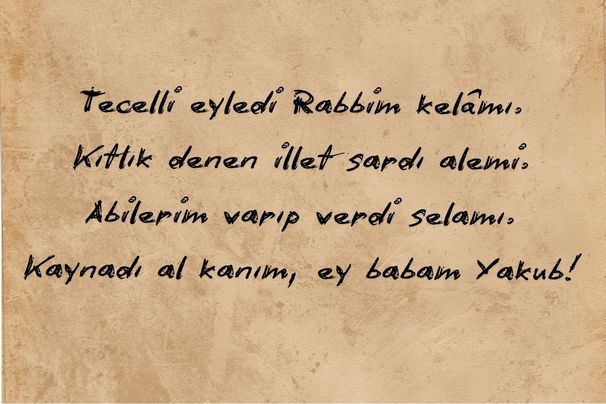 Tecelli eyledi Rabbim kelâmı.
Kıtlık denen illet sardı alemi.
Abilerim varıp verdi selamı.
Kaynadı al kanım, ey babam Yakub!